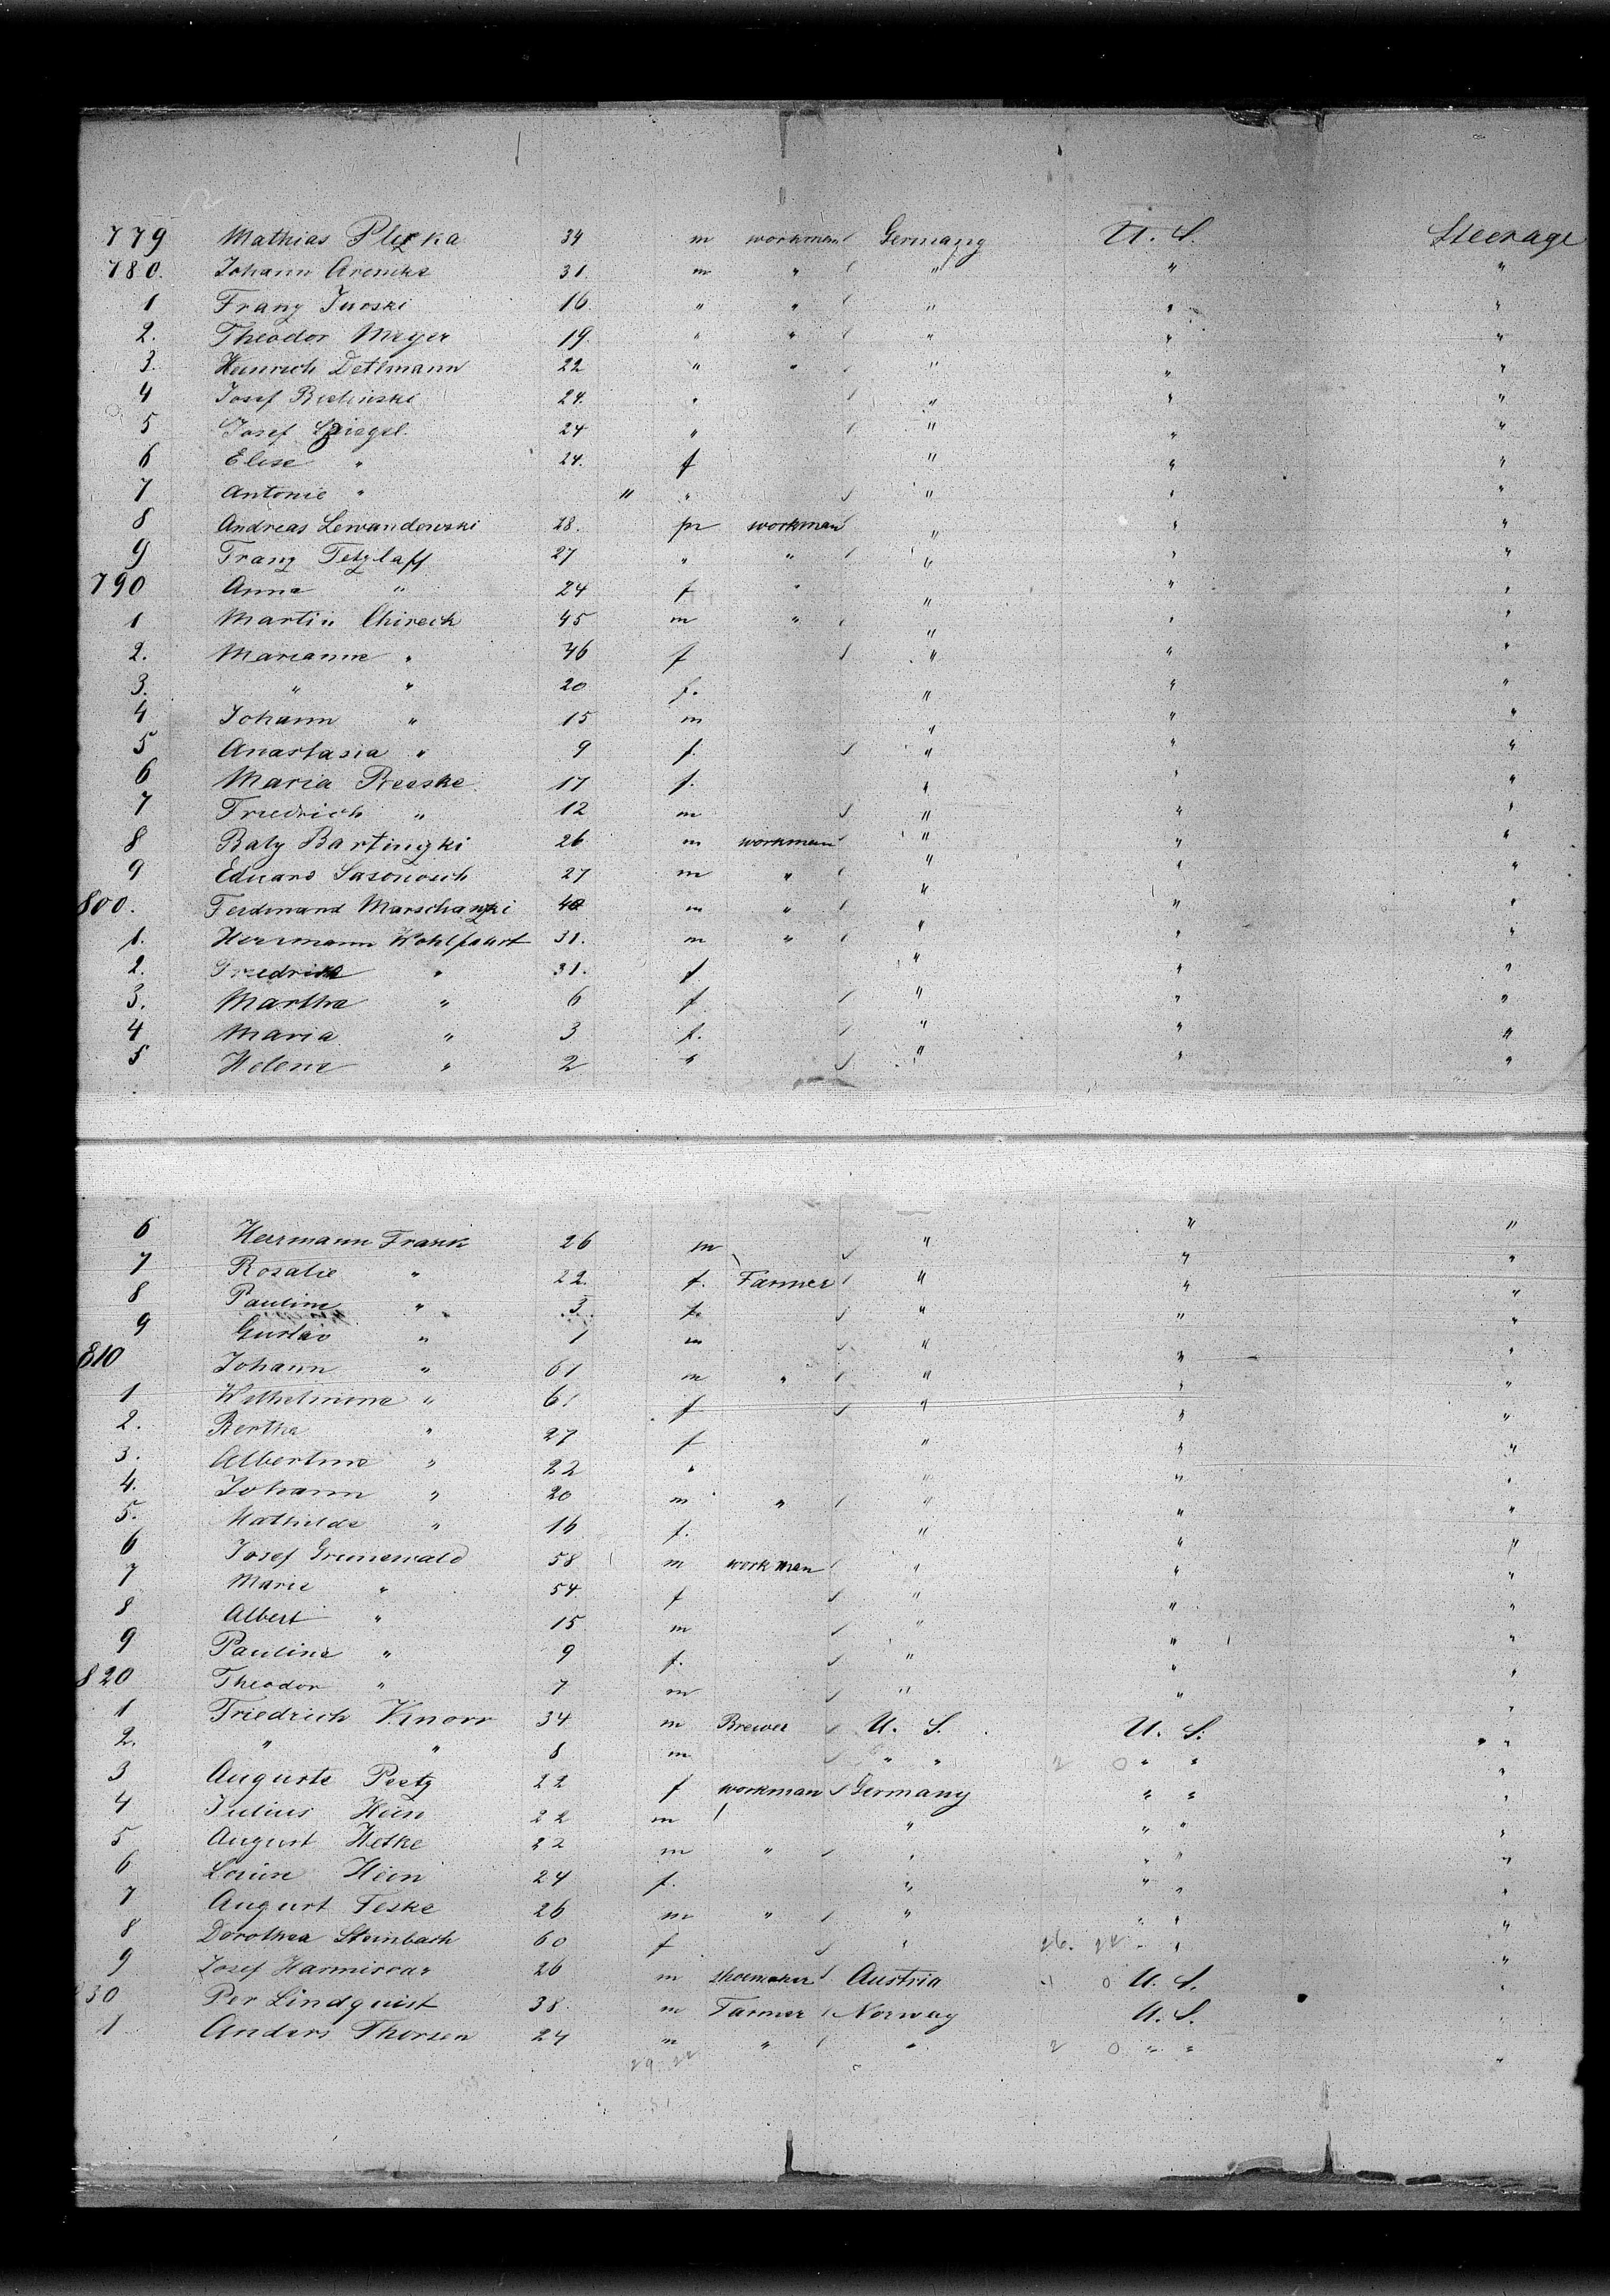 779 Mathias Plizka 34 m workman Germany U. S. Steerage
780. Johann Arencke 31. m " " " "
1 Franz Juoski 16. " " " " "
2. Theodor Meyer 19. " " " " "
3. Heinrich Detlmann 22 " " " " "
4 Josef Bielinski 24. " " " "
5 Josef Spiegel. 24 " " " "
6 Elise " 24. f " " "
7 Antonie " " " " " "
8 Andreas Lewandowski 28. m workman " " "
9 Franz Tetzlaff 27 " " " " "
790 Anna " 24 f " " " "
1 Martin Chireck 45 m " " " "
2. Marianne " 46 f " " "
3. " " 20 f. " " "
4 Johann " 15 m " " "
5 Anastasia " 9 f. " " "
6 Maria Reeske 17 f. " " "
7 Friedrich " 12 m " " "
8 Baty Bartingki 26. m workman " " "
9 Eduard Sasonosch 27 m " " " "
800. Ferdinand Marschanzki 40 m " " " "
1. Herrmann Wohlfaart 31. m " " " "
2. Friedrike " 31. f " " "
3. Martha " 6 f. " " "
4 Maria " 3 f. " " "
5 Helene " 2 " " " "
6 Herrmann Frank 26 m " " "
7 Rosalie " 22. f. Farmer " " "
8 Pauline " 3 f. " " "
9 Gustav " 1 m " " "
810 Johann " 61 m " " " "
1 Wilhelmine " 61 f " " "
2. Bertha " 27 f " " "
3. Albertine " 22 " " " "
4. Johann " 20 m " " " "
5. Mathilde " 16 f. " " "
6 Josef Grunewald 58 m workman " " "
7 Marie " 54. f " " "
8 Albert " 15 m " " "
9 Pauline " 9 f. " " "
820 Theodor " 7 m " " "
1 Friedrich Knorr 34 m Brewer U. S. U. S. "
2. " " 8 m " " 2 0 " " "
3 Auguste Peetz 22 f workman Germany " " "
4 Julius Hein 22 m " " " "
5 August Hetke 22 m " " " " "
6 Louise Hein 24 f. " " " "
7 August Teske 26 m " " " " "
8 Dorothea Steinbach 60 f " 26. 24 " " "
9 Josef Harmisvar 26 m shoemaker Austria 1 0 U. S. "
830 Per Lindquist 38. m Farmer Norway U. S. "
1 Anders Thorsen 24 m " " 2 0 " " "
29 22